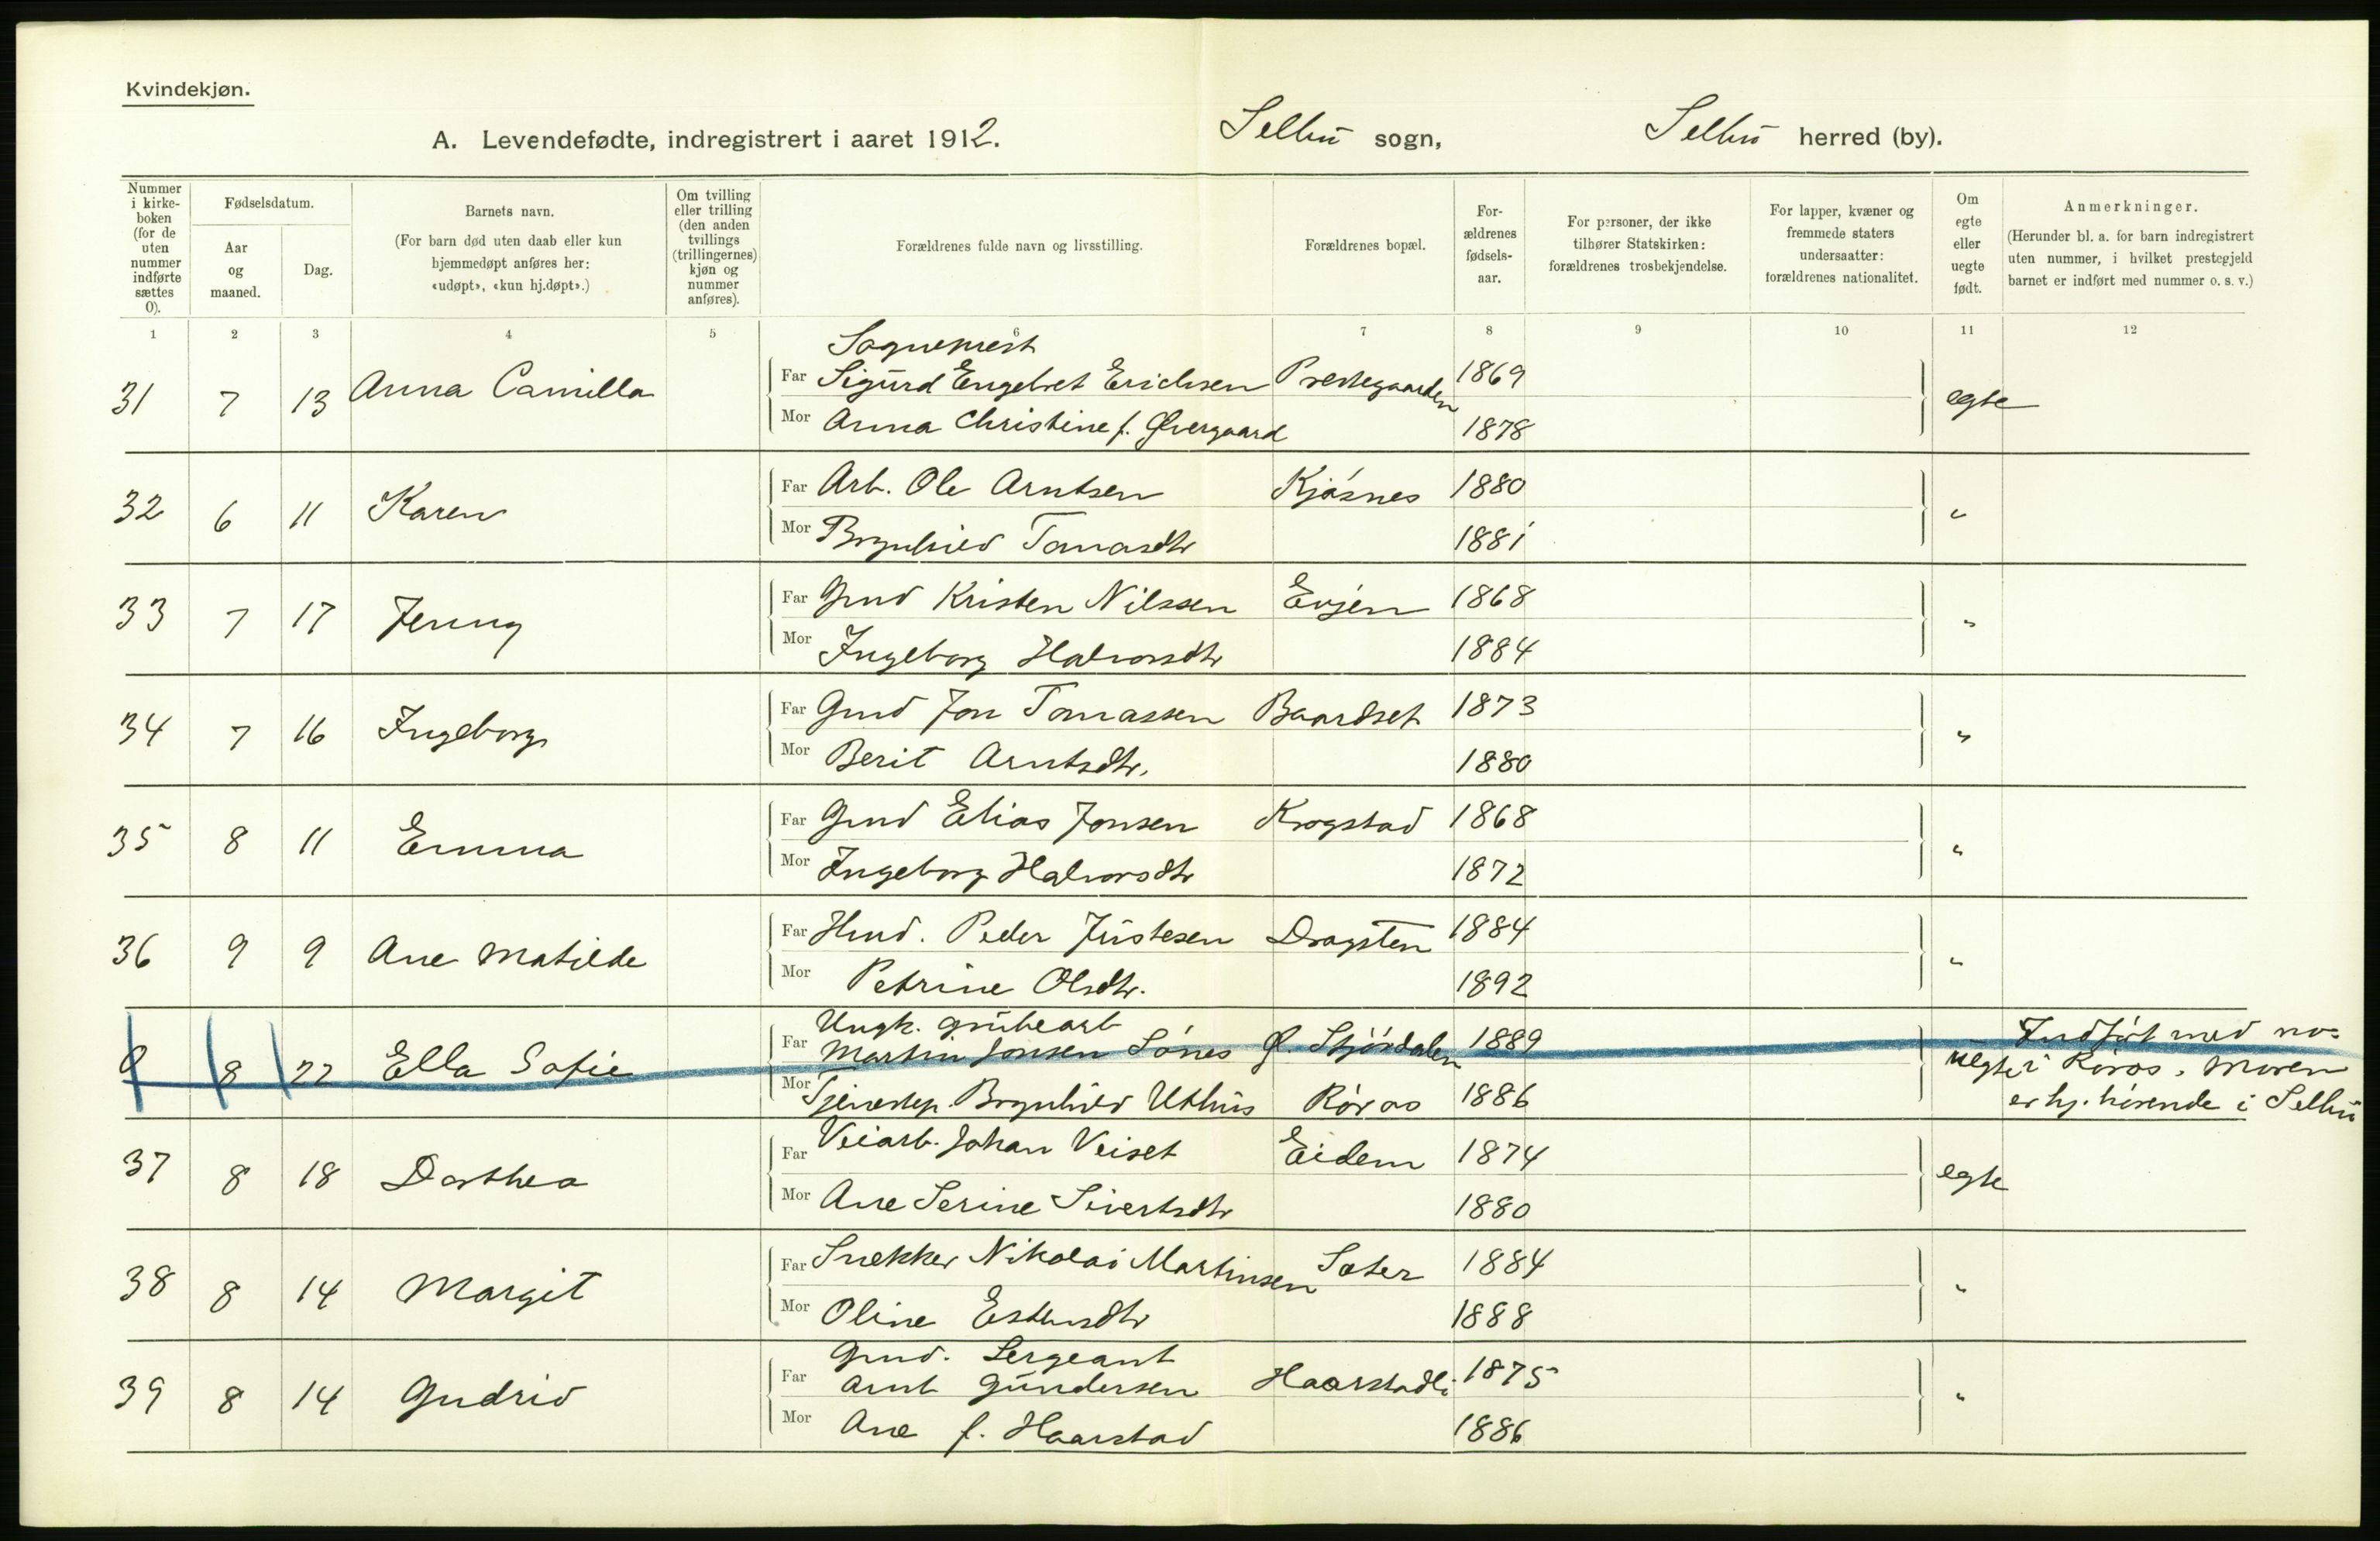 Kvindekjøn.
A. Levendefødte, indregistrert i aaret 1912. Selbu sogn, Selbu herred (by).
Nummer i kirke-boken (for de uten nummer indførte sættes 0).
Fødselsdatum.
Aar og maaned.
Dag.
Barnets navn.
(For barn død uten daab eller kun hjemmedøpt anføres her: «udøpt», «kun hj.døpt».)
Om tvilling eller trilling (den anden tvillings (trillingernes) kjøn og nummer anføres).
Forældrenes fulde navn og livsstilling.
Forældrenes bopæl.
For-ældrenes fødsels-aar.
For personer, der ikke tilhører Statskirken: forældrenes trosbekjendelse.
For lapper, kvæner og fremmede staters undersaatter: forældrenes nationalitet.
Om egte eller uegte født.
Anmerkninger.
(Herunder bl. a. for barn indregistrert uten nummer, i hvilket prestegjeld barnet er indført med nummer o. s. v.)
1 2 3 4 5 6 7 8 9 10 11 12
Sogneprest
31 7 13 Anna Camilla Far Sigurd Engebret Erichsen Prestegaarden 1869 egte
Mor Anna Christine f. Øvergaard 1878
32 6 11 Karen Far Arb. Ole Arntsen Kjøsnes 1880 "
Mor Brynhild Tomasdtr 1881
33 7 17 Jenny Far Gmd Kristen Nilssen Evjen 1868 "
Mor Ingeborg Halvorsdtr 1884
34 7 16 Ingeborg Far Gmd Jon Tomassen Baardset 1873 "
Mor Berit Arntsdtr. 1880
35 8 11 Emma Far Gmd Elias Jonsen Krogstad 1868 "
Mor Ingeborg Halvorsdtr 1872
36 9 9 Ane Matilde Far Hmd. Peder Justesen Dragsten 1884 "
Mor Petrine Olsdtr. 1892
Ungk. grubearb
0 8 22 Ella Sofie Far Martin Jonsen Sønes Ø. Stjørdalen 1889 uegte Indført med no.
i Røros. Moren
Mor Tjenestep. Brynhild Uthus Røros 1886 er hj. hørende i Selbu
37 8 18 Dorthea Far Veiarb. Johan Veiset Eidem 1874 egte
Mor Ane Serine Sivertsdtr 1880
38 8 14 Margit Far Snekker Nikolai Martinsen Sæter 1884 "
Mor Oline Estensdtr 1888
Gmd. Sergeant
39 8 14 Gudrid Far Arnt Gundersen Haarstadli 1875 "
Mor Ane f. Haarstad 1886